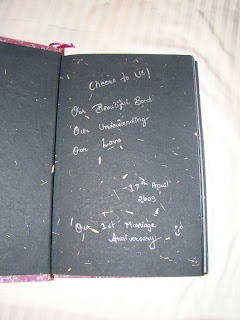 Cheers to Us!
Our Beautiful Bond
Our Understanding
Our Love
-17th April
2009
Our 1st Marriage
Anniversary